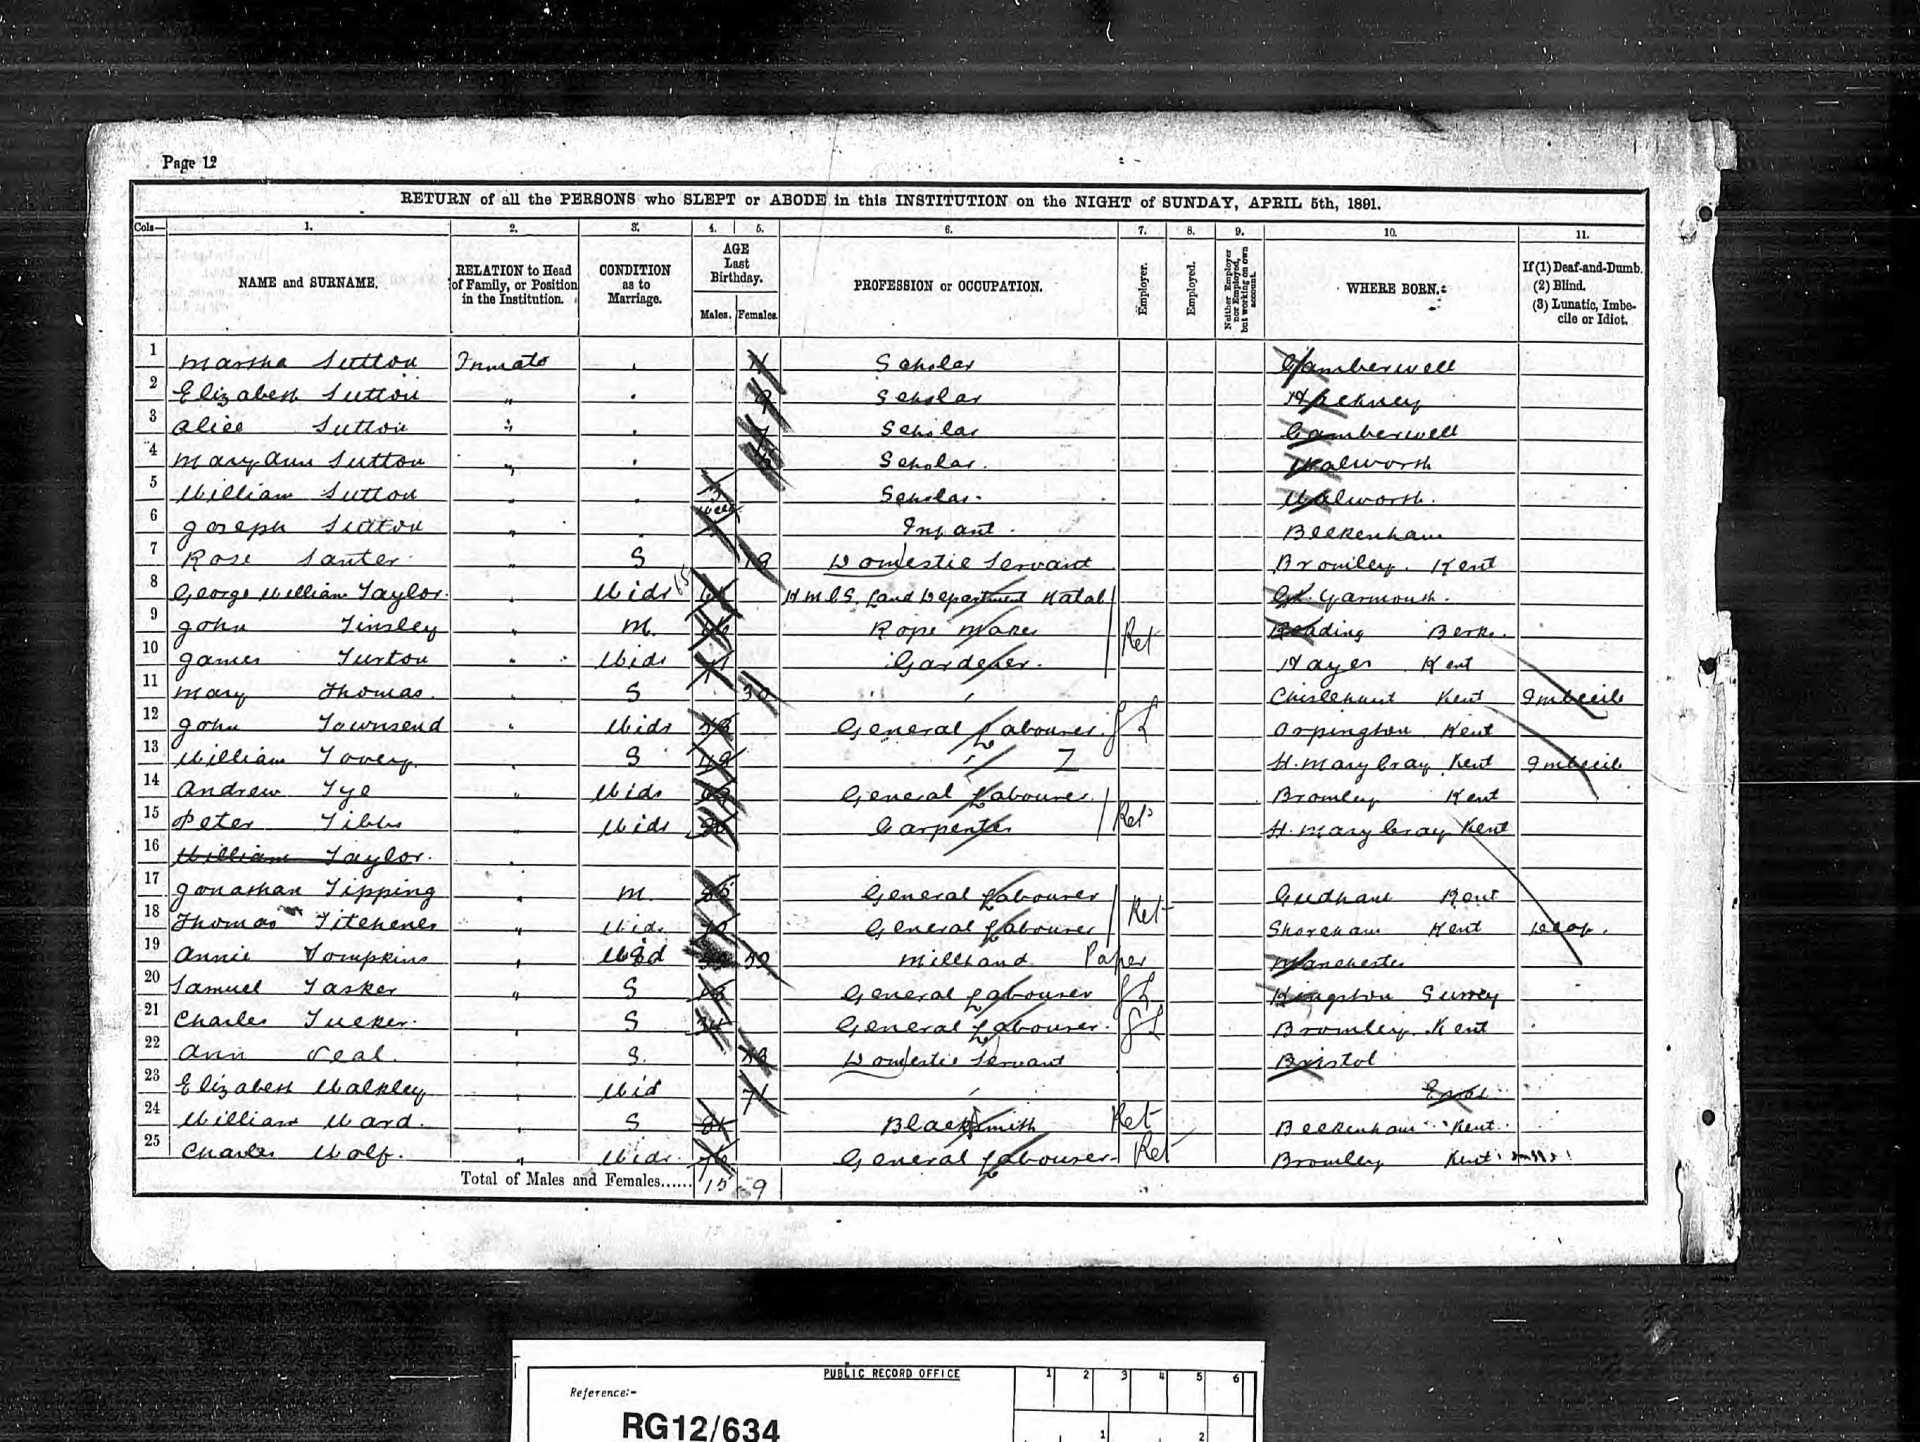 Page 12
RETURN of all the PERSONS who SLEPT or ABODE in this INSTITUTION on the NIGHT of SUNDAY, APRIL 5th, 1891.
Cols— 1. 2. 3. 4. 5. 6. 7. 8. 9. 10. 11.
NAME and SURNAME. RELATION to Head of Family, or Position in the Institution. CONDITION as to Marriage. AGE Last Birthday. Males. Females. PROFESSION or OCCUPATION. Employer. Employed. Neither Employer nor Employed, but working on own account. WHERE BORN. If (1) Deaf-and-Dumb. (2) Blind. (3) Lunatic, Imbecile or Idiot.
1 Martha Sutton Inmate 11 Scholar Camberwell
2 Elizabeth Sutton " 9 Scholar Hackney
3 Alice Sutton " Scholar Camberwell
4 Mary Ann Sutton " Scholar. Walworth
5 William Sutton " Scholar. Walworth.
6 Joseph Sutton " Infant. Beckenham
7 Rose Santer " S 19 Domestic Servant Bromley. Kent
8 George William Taylor. " Widr Land Department Natal Gt. Yarmouth.
9 John Tinsley " M. Rope Maker Ret Reading Berks.
10 James Turton " Widr Gardener. Hayes Kent
11 Mary Thomas. " S 30 Chislehurst Kent Imbecile
12 John Townsend " Widr General Labourer. GL Orpington Kent
13 William Tovey. " S 49 St. Mary Cray Kent Imbecile
14 Andrew Tye " Widr General Labourer. Bromley Kent
15 Peter Tibbs " Widr Carpenter Ret St. Mary Cray Kent
16 William Taylor.
17 Jonathan Tipping " M. General Labourer Ret Cudham Kent
18 Thomas Titchener " Widr General Labourer Shoreham Kent Deaf.
19 Annie Tompkins " Wid 59 Millhand Paper Manchester
20 Samuel Tasker " S General Labourer GL Kingston Surrey
21 Charles Tucker. " S 34 General Labourer. GL Bromley. Kent
22 Ann Veal. " S. Domestic Servant Bristol
23 Elizabeth Walkley " Wid 71
24 William Ward. " S Blacksmith Ret Beckenham Kent.
25 Charles Wolf. " Widr. 76 General Labourer. Ret Bromley Kent
Total of Males and Females...... 15 9
PUBLIC RECORD OFFICE
1 2 3 4 5 6
Reference:-
RG12/634
1 2